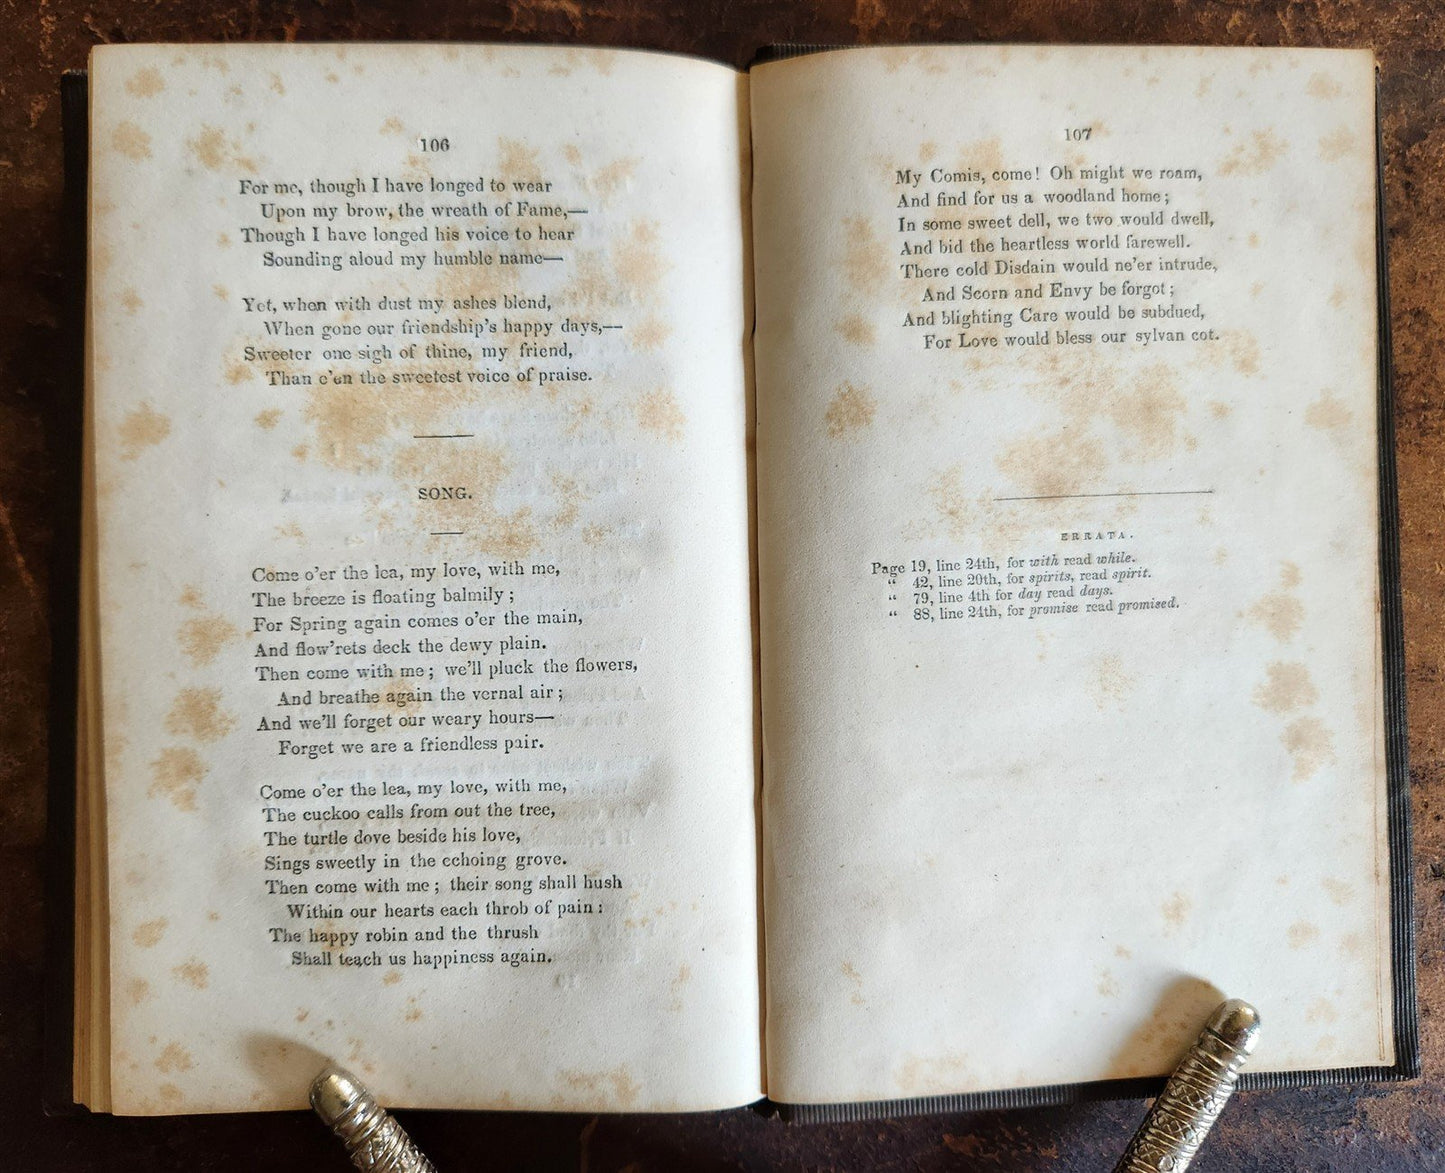 106
For me, though I have longed to wear
Upon my brow, the wreath of Fame,—
Though I have longed his voice to hear
Sounding aloud my humble name—
Yet, when with dust my ashes blend,
When gone our friendship's happy days,—
Sweeter one sigh of thine, my friend,
Than e'en the sweetest voice of praise.
SONG.
Come o'er the lea, my love, with me,
The breeze is floating balmily;
For Spring again comes o'er the main,
And flow'rets deck the dewy plain.
Then come with me; we'll pluck the flowers,
And breathe again the vernal air;
And we'll forget our weary hours—
Forget we are a friendless pair.
Come o'er the lea, my love, with me,
The cuckoo calls from out the tree,
The turtle dove beside his love,
Sings sweetly in the echoing grove.
Then come with me; their song shall hush
Within our hearts each throb of pain:
The happy robin and the thrush
Shall teach us happiness again.
107
My Comis, come! Oh might we roam,
And find for us a woodland home;
In some sweet dell, we two would dwell,
And bid the heartless world farewell.
There cold Disdain would ne'er intrude,
And Scorn and Envy be forgot;
And blighting Care would be subdued,
For Love would bless our sylvan cot.
ERRATA.
Page 19, line 24th, for with read while.
" 42, line 20th, for spirits, read spirit.
" 79, line 4th for day read days.
" 88, line 24th, for promise read promised.